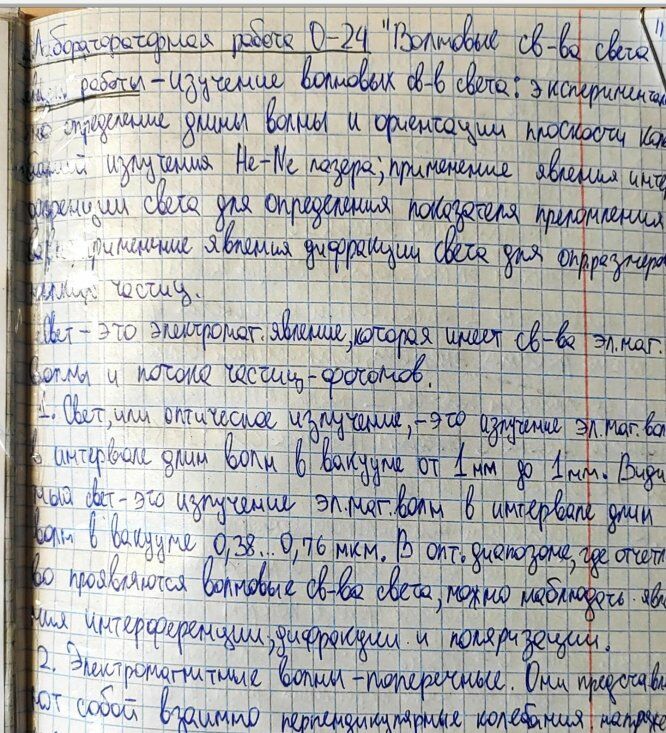 Лабораторатофная работа О-24 "Волновые св-ва света
работы – изучение волновых св-в света: эксперимента
определение длины волны и ориентации плоскости кол
излучения He-Ne лазера; применение явления инте
света для определения показателя преломления
применение явления дифракции света для опр.размера
частиц.
Свет – это электромаг. явление, которая имеет св-ва эл.маг.
волны и потока частиц – фотонов.
1. Свет, или оптическое излучение, – это излучение эл.маг.вол
в интервале длин волн в вакууме от 1нм до 1мм. Види
мый свет – это излучение эл.маг.волн в интервале длин
волн в вакууме 0,38...0,76 мкм. В опт.диапазоне, где отчетл
во проявляются волновые св-ва света, можно наблюдать явл
ния интерференции, дифракции и поляризации.
2. Электромагнитные волны – поперечные. Они представл
ют собой взаимно перпендикулярные колебания напряже